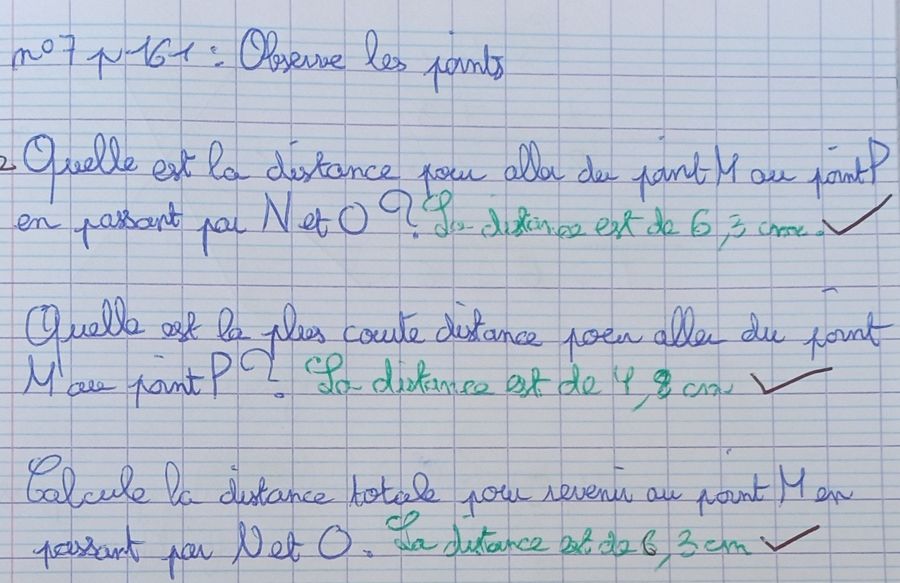 n°7 p 161 : Observe les points
2. Quelle est la distance pour aller du point M au point P
en passant par N et O ? La distance est de 6,3 cm.
Quelle est la plus courte distance pour aller du point
M au point P ? La distance est de 4,8 cm
Calcule la distance totale pour revenir au point M en
passant par N et O. La distance est de 6,3 cm